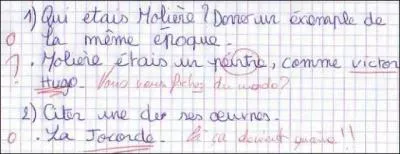 1) Qui etais Molière ? Donner un éxemple de
la même époque.
0
? . Molière étais un peintre, comme victor
Hugo. Vous vous fichez du monde ?
2) Citer une de ses œuvres.
0 . La Joconde. Là ça devient grave !!